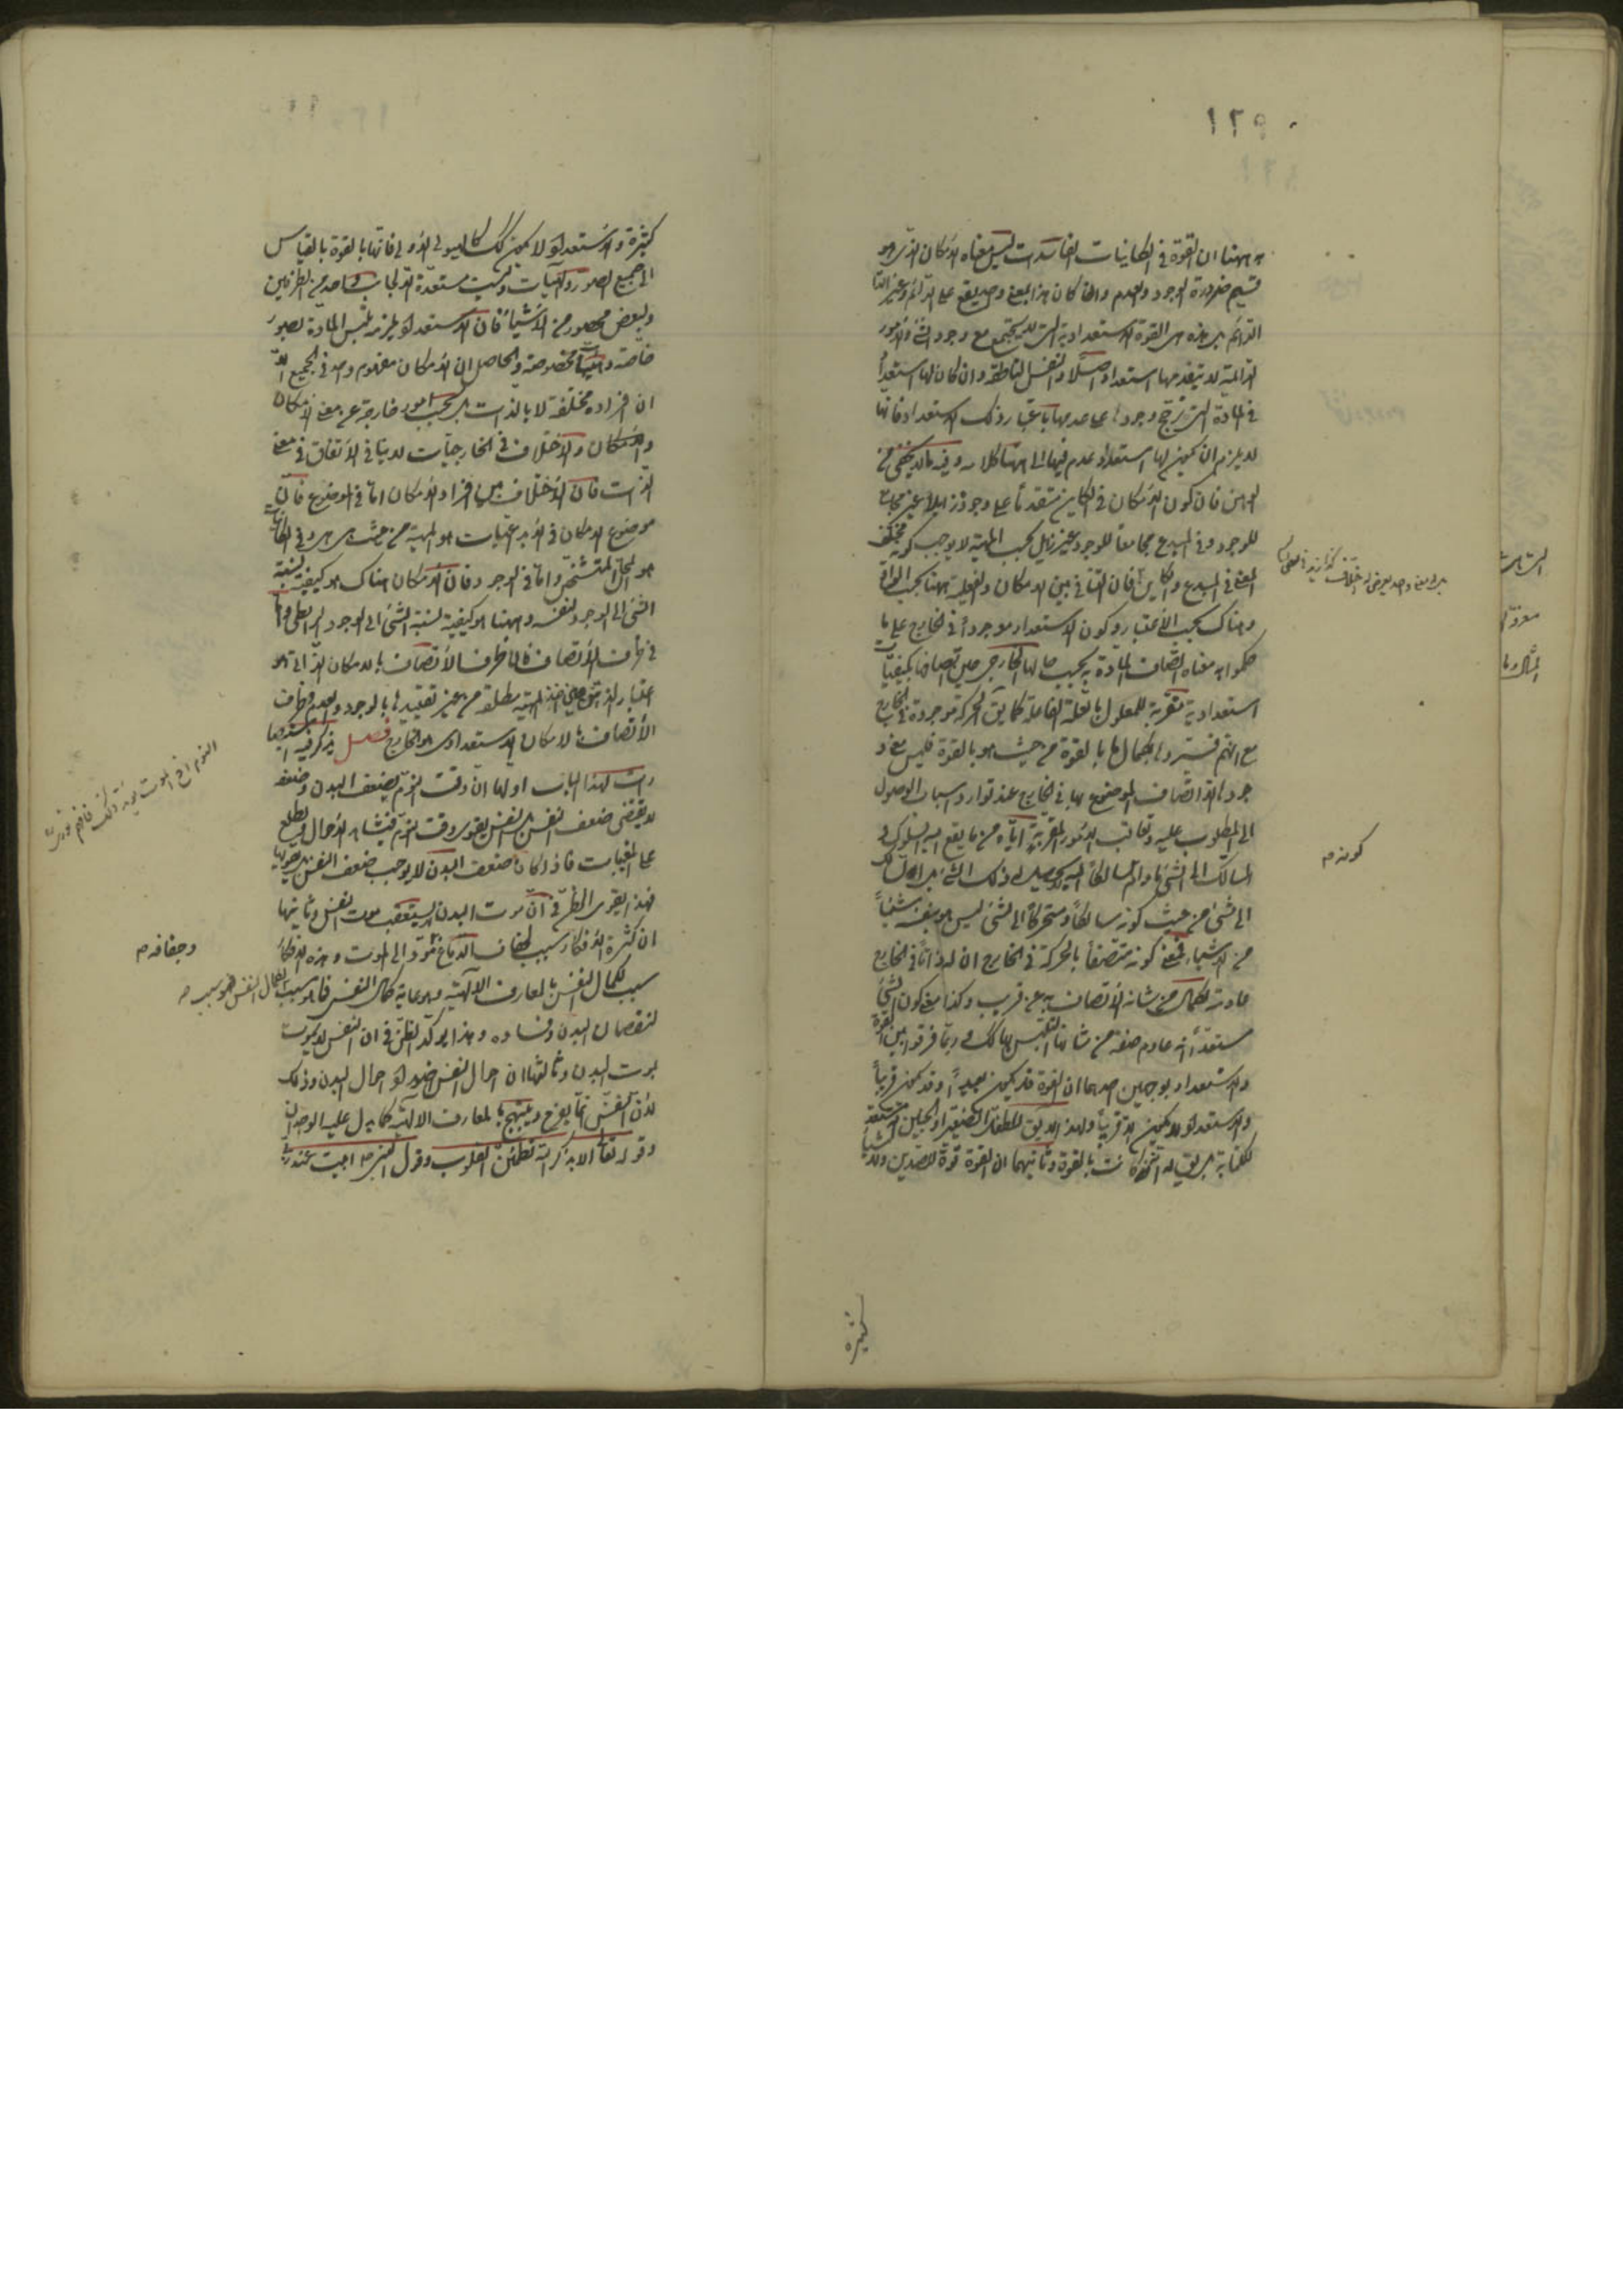 ١٢٩٠
به ههنا ان القوة فى الكاينات الفاسدات ليس معناه الامكان الذى هو
قسيم ضرورة الوجود والعدم وان كان هذا المعنى وحد يقع على الدائم وغير
الدائم بل هذه هى القوة الاستعدادية التى لا يجتمع مع وجود الشئ والامور
الدائمة لا يتقدمها استعداد اصلا والنفس الناطقة وان كان لها استعداد
فى المادة التى ترجح وجودها على عدمها باعتبار ذلك الاستعداد فانها
لا يلزم ان يكون لها استعداد عدم فيها الى ههنا كلامه وفيه ما لا يخفى من
الوهن فان كون الامكان فى الكاين متقدما على وجوده زايلا غير مجامع
للوجود وفى المبدع مجامعا للوجود غير زايل بحسب المهية لا يوجب كونه مختلف
المعنى فى المبدع والكاين فان التنافى بين الامكان والفعلية ههنا بحسب الواقع
وهناك بحسب الاعتبار وكون الاستعداد موجودا فى الخارج على ما
حكموا به معناه اتصاف المادة به بحسب حالها الخارجى حين اتصافها بكيفيات
استعدادية مقربة للمعلول بالعلة الفاعلة كما يق الحركة موجودة فى الخارج
مع انهم فسروها بكمال ما بالقوة من حيث هو بالقوة فليس معنى و
جودها الا اتصاف الموضوع بها فى الخارج عند توارد اسباب الوصول
الى المطلوب عليه وتعاقب الامور المقربة اياه من ما يقع اليه السلوك و
السالك الى الشئ ما دام سالكا اليه لا يحصل له ذلك الشئ بل السالك
الى الشئ من حيث كونه سالكا ومتحركا الى الشئ ليس هو بنفسه شيئا
من الاشياء فمعنى كونه متصفا بالحركة فى الخارج ان له ذاتا فى الخارج
عادمة لكمال من شانه الاتصاف به عن قريب وكذا معنى كون الشئ
مستعدا انه عادم صفة من شانها التلبس بها كك وربما فرقوا بين القوة
والاستعداد بوجهين احدهما ان القوة قد يكون بعيدا وقد يكون قريبا
والاستعداد لا يكون الا قريبا ولهذا لا يق للطفل الصغير او الجنين مستعد
للكتابة بل يق له انه كاتب بالقوة وثانيهما ان القوة قوة للضدين ولاشياء
كثيرة
بل المعنى واحد يعرض له اختلاف
كونه م
كثيرة والاستعداد لا يكون كك كالهيولى الاولى فانها بالقوة بالقياس
الى جميع الصور والهيئات وليست مستعدة الا لجانب واحد من الطرفين
ولبعض محصور من الاشياء فان الاستعداد يلزمه تلبس المادة بصور
خاصة وهيئات مخصوصة والحاصل ان الامكان مفهوم واحد فى الجميع الا
ان افراده مختلفة لا بالذات بل بحسب امور خارجة عن معنى الامكان
والامكان والاختلاف فى الخارجيات لا ينافى الاتفاق فى معنى
الذات فان الاختلاف بين افراد الامكان اما فى الموضوع فان
موضوع الامكان فى الابداعيات هو المهية من حيث هى هى وفى الكاينات
هو المحل المتشخص واما فى الوجود فان الامكان هناك هو كيفية نسبة
الشئ الى الوجود لنفسه وههنا هو كيفية نسبة الشئ الى الوجود الرابطى واما
فى ظرف الاتصاف فان ظرف الاتصاف بالامكان الذاتى هو
اعتبار الذهن حين اخذ المهية مطلقة من غير تقييدها بالوجود والعدم وظرف
الاتصاف بالامكان الاستعدادى هو الخارج فصل يذكر فيه
رت لهذا الباب اولها ان وقت النوم يضعف البدن وضعفه
لا يقتضى ضعف النفس بل النفس يقوى وقت النوم فيشاهد الاحوال ويطلع
على المغيبات فاذا كان ضعف البدن لا يوجب ضعف النفس
فهذا يقوى الظن فى ان موت البدن لا يستعقب موت النفس وثانيها
ان كثرة الافكار سبب لجفاف الدماغ مؤد الى الموت وهذه الافكار
سبب لكمال النفس بالمعارف الالهية وهو غاية كمال النفس فما هو سبب
لنقصان البدن وفساده وهذا يؤكد الظن فى ان النفس لا يموت
بموت البدن وثالثها ان احوال النفس ضد احوال البدن وذلك
لان النفس انما يفرح ويبتهج بالمعارف الالهية كما يدل عليه الوجدان
وقوله تعالى الا بذكر الله تطمئن القلوب وقول النبى ص ابيت عند ربى
النوم اخ الموت يؤيد ذلك فافهم
وجفافه م
لكمال النفس فهو سبب م